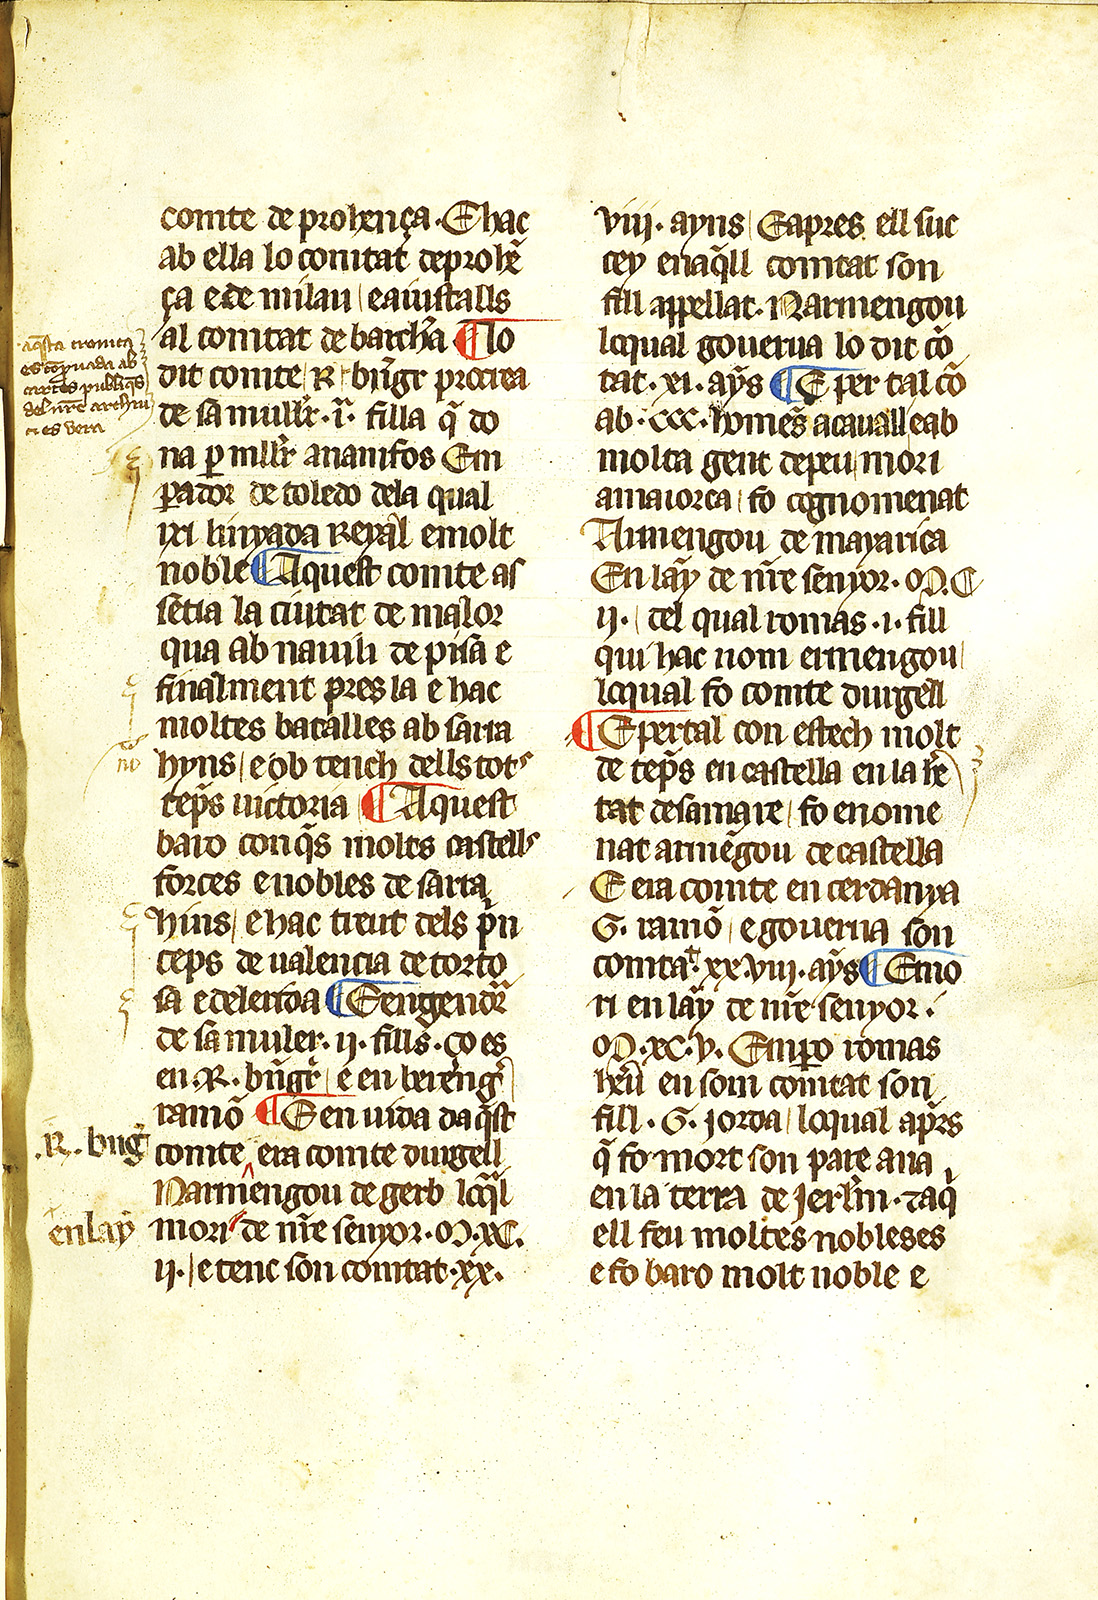 comte de prohença. E hac
ab ella lo comtat de prohē
ça e de milau e aiustalls
al comtat de barchna ¶ Lo
dit comte R bn̄gr procrea
de sa mullr. i. filla q̄ do
na per mllr anamfos Em
perador de toledo dela qual
ixi linyada Reyal e molt
noble ¶ Aquest comte as
setia la ciutat de malor
qua ab nauili de pisa e
finalment pres la e hac
moltes batalles ab sarra
hyns e ob tench dells tots
tēps uictoria ¶ Aquest
baro conq̄s molts castells
forces e nobles de sarra
hins e hac treut dels p̄n
ceps de ualencia de torto
sa e de lerida ¶ E engendr
de sa muler. ij. fills. ço es
en. R. bn̄gr e en bereng
ramō ¶ E en uida daq̄st
comte era comte durgell
Narmengou de gerb lo q̄l
mori de nr̄e senyor. M. XC.
ij. e tenc son comtat. xx.
aq̄sta cronica
es cōprouada ab
cartes publiq̄s
del nr̄e archiu
es vera
.R. bn̄g
en lay
viij. ayns E apres ell suc
cey en aq̄ll comtat son
fill appellat. Narmengou
lo qual gouerna lo dit cō
tat. xi. ay̅s ¶ E per tal cō
ab. CCC. homēs a cauall e ab
molta gent de peu mori
a maiorca fo cognomenat
Armengou de mayarica
En lay de nr̄e senyor. M. C
ij. del qual romas. i. fill
qui hac nom ermengou
lo qual fo comte durgell
¶ E per tal con estech molt
de tēps en castella en la he
tat de samare fo en ome
nat armēgou de castella
E era comte en cerdanya
G. ramō e gouerna son
comtat. xx. viij. ay̅s ¶ E mo
ri en lay de nr̄e senyor.
M. XC. V. Empero romas
hereu en som comtat son
fill. G. jorda lo qual aprs
q̄ fo mort son pare ana
en la terra de jerlm. e aq̄
ell feu moltes nobleses
e fo baro molt noble e